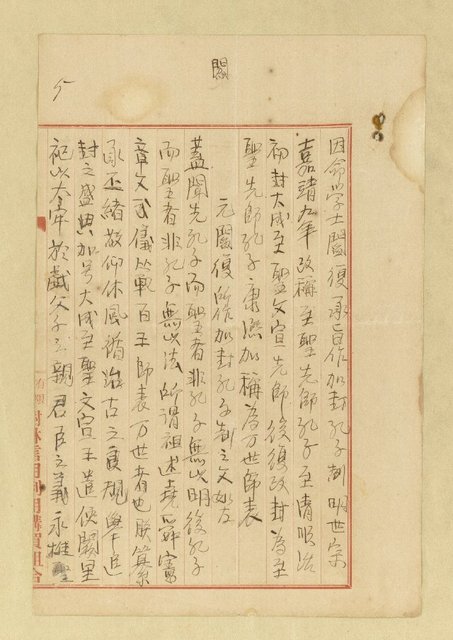 闕
5
因命学士閻復承旨作加封孔子制明世宗
嘉靖九年改稱至聖先師孔子至清順治
初封大成至聖文宣先師後復改封為至
聖先師孔子康熙加稱為万世師表
元閻復所作加封孔子制之文如左
蓋聞先孔子而聖者非孔子無以明後孔子
而聖者非孔子無以法所謂祖述堯舜憲
章文武儀範百王師表万世者也朕纂
承丕緒敬仰休風循治古之良規舉追
封之盛典加号大成至聖文宣王遣使闕里
祀以太牢於戲父子之親君臣之義永惟聖